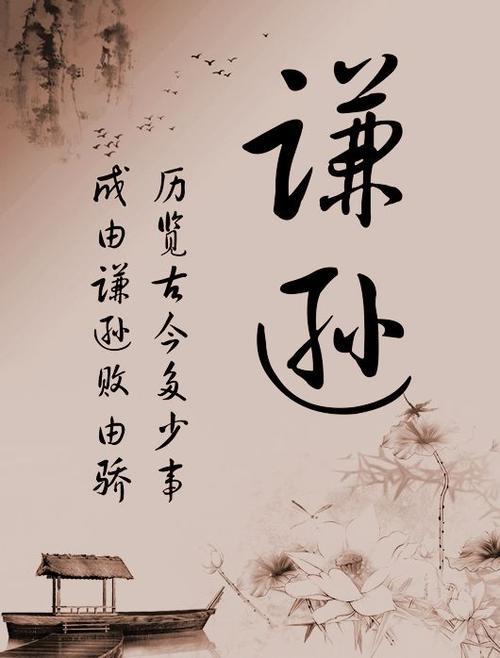 谦逊
历览古今多少事
成由谦逊败由骄